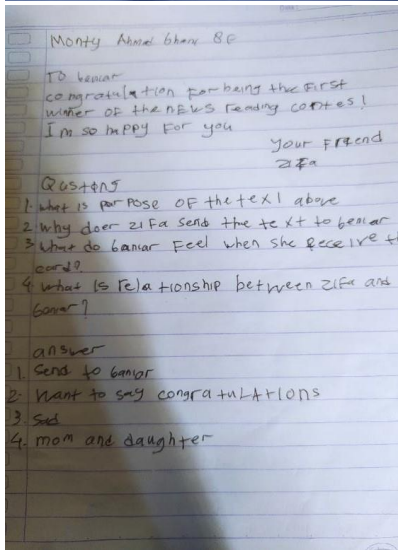 Monty Ahmad Ghani 8G
To beniar
congratulation For being the First
winner OF the nEWS reading contes!
I'm so happy For you
your Friend
ziFa
Qustions
1. what is porpose OF the text above
2. why doer ziFa send the text to beniar
3. what do baniar Feel when she Receive th
card?
4. what is relationship between ziFa and
baniar?
answer
1. Send to baniar
2. want to say congratuLAtions
3. Sad
4. mom and daughter